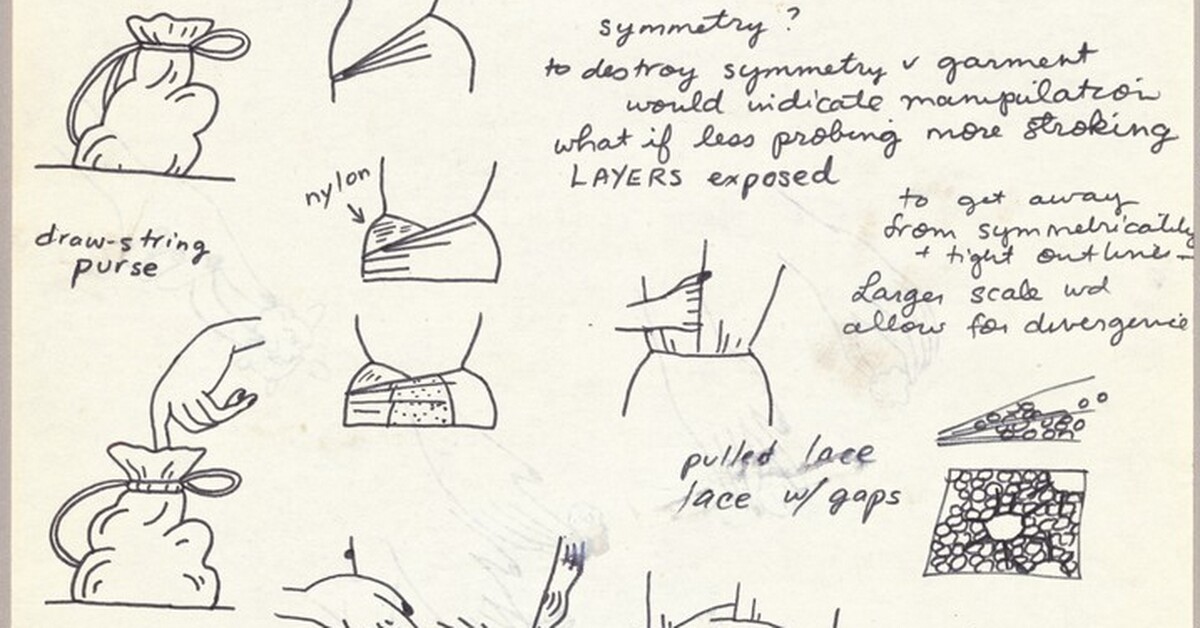 symmetry?
to destroy symmetry v garment
would indicate manipulation
what if less probing more stroking
LAYERS exposed
to get away
from symmetricality
+ tight outlines -
Larger scale wd
allow for divergence
nylon
draw-string
purse
pulled lace
lace w/ gaps